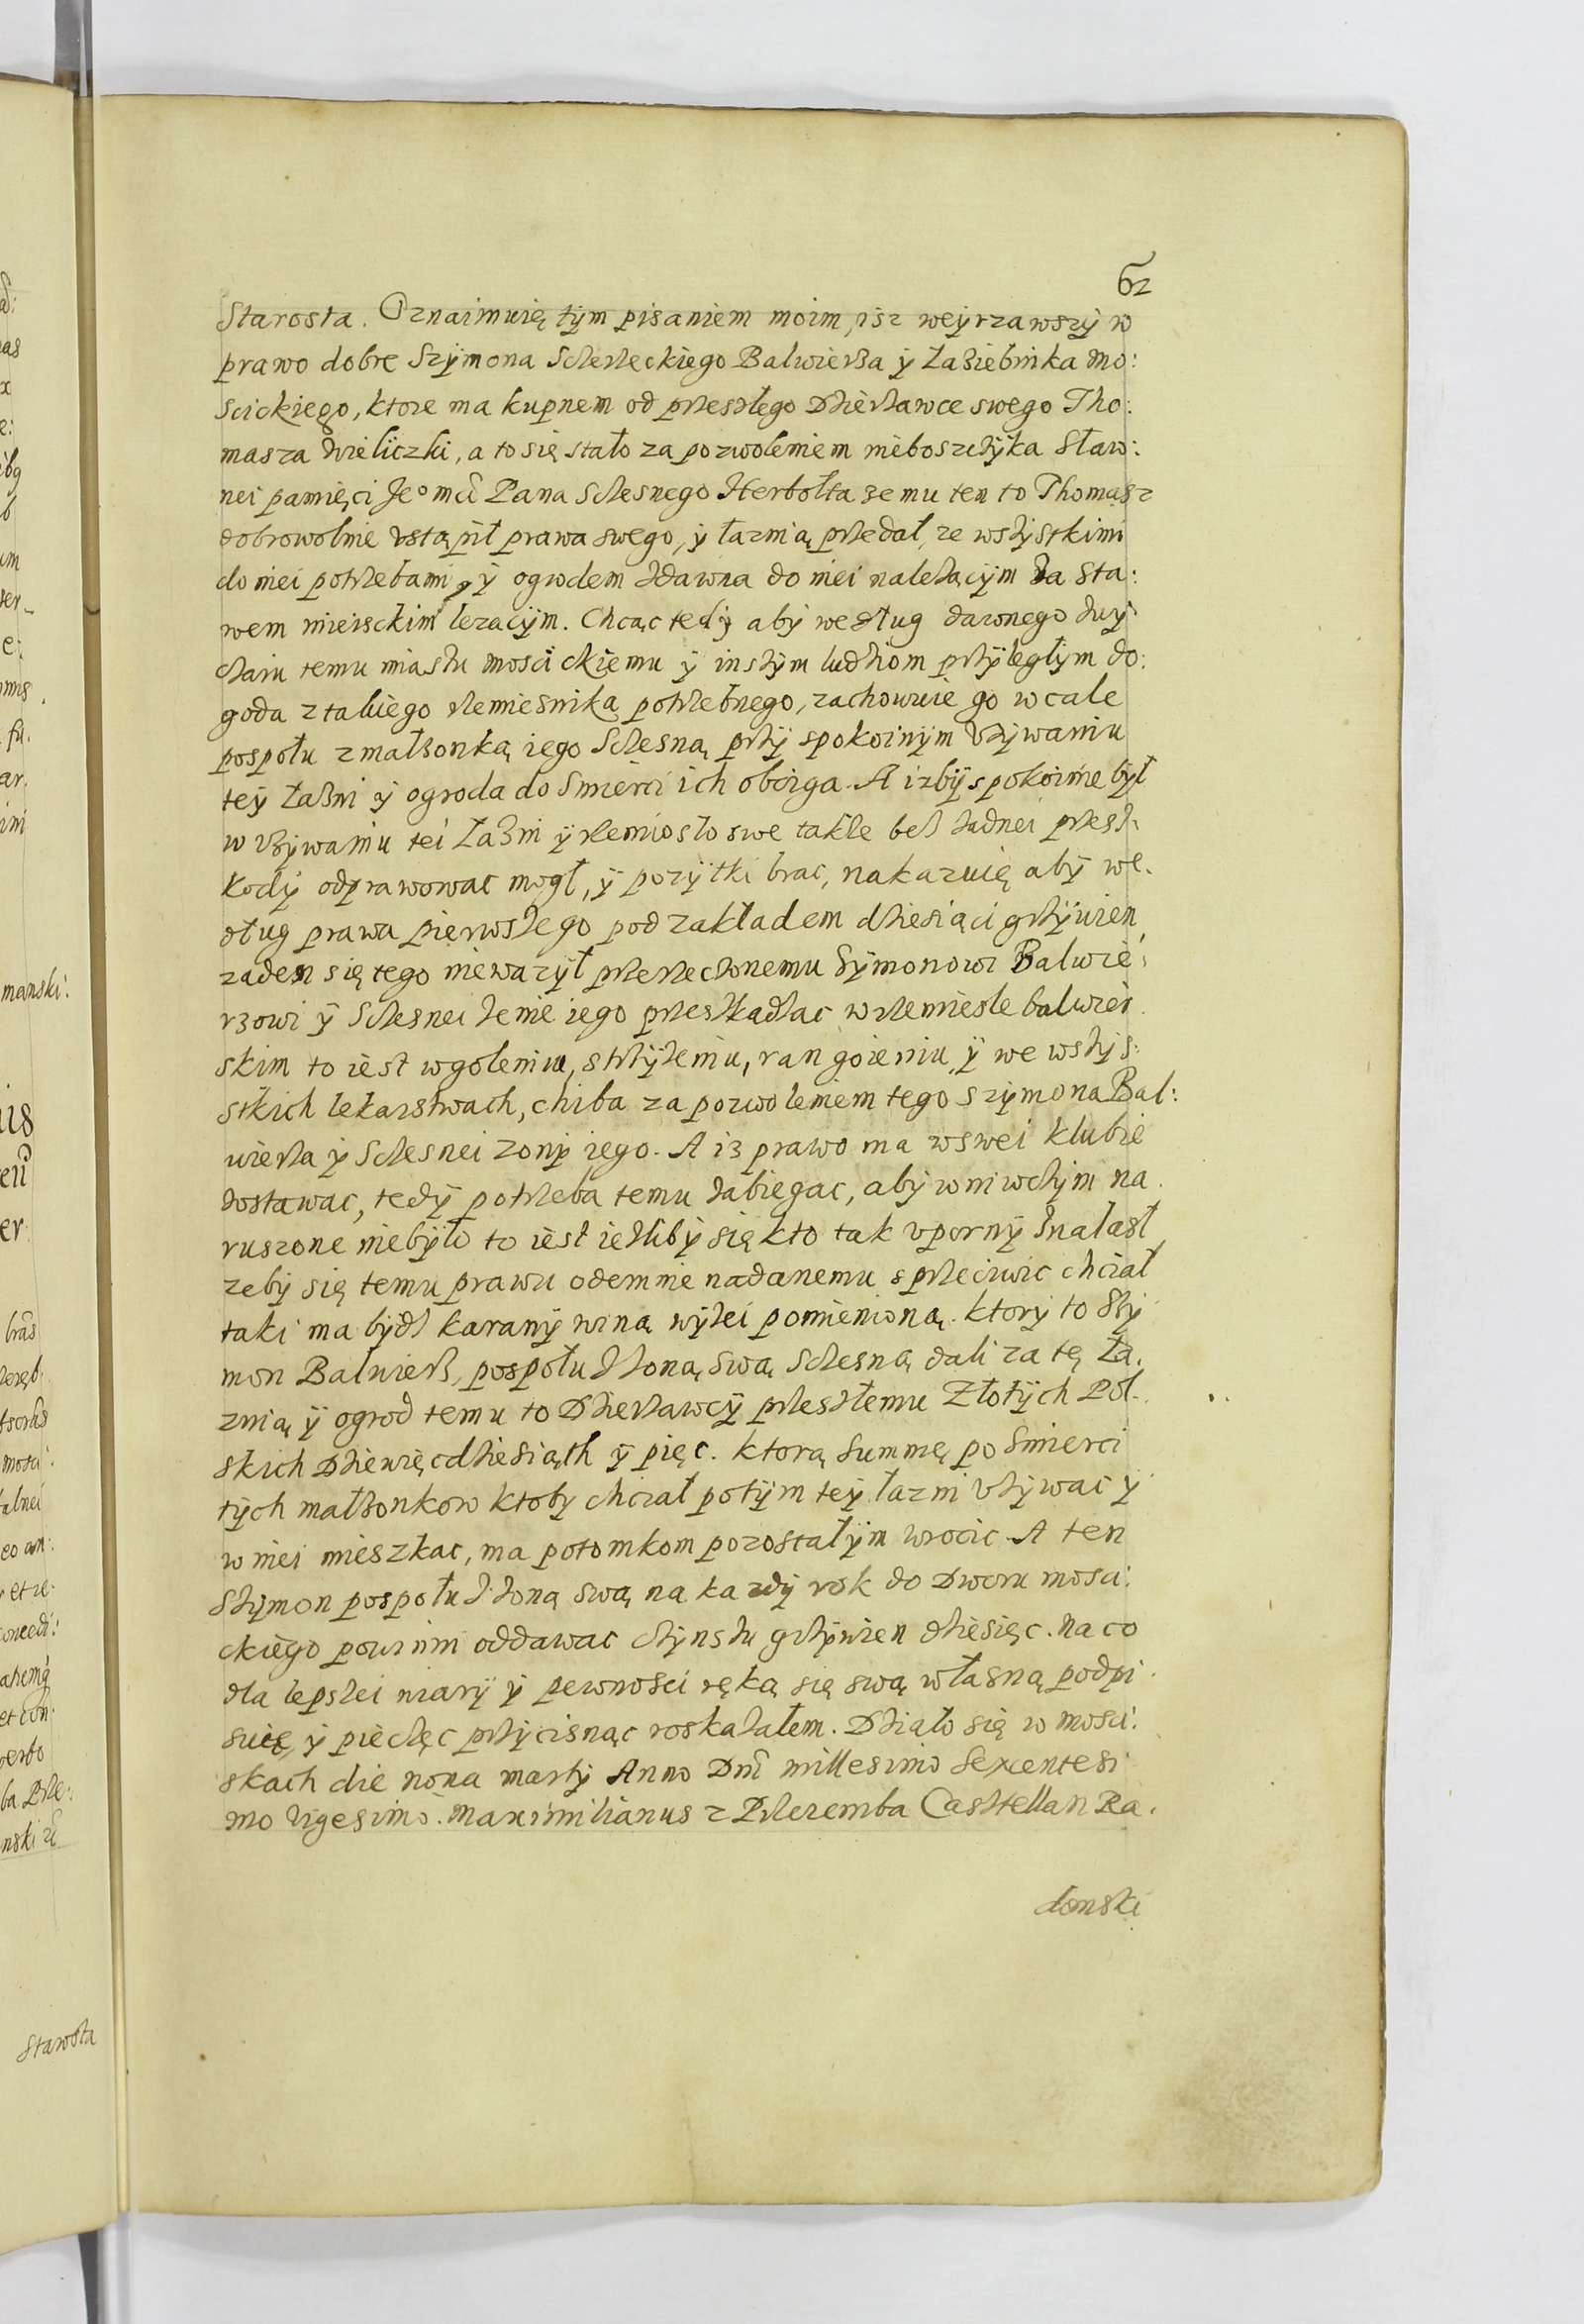 62
Starosta. Oznaimuię tym pisaniem moim, isz weyrzawszy w
prawo dobre Szymona Sczerzeckiego Balwierza y Łaziebnika Mo:
scickiego, ktore ma kupnem od przeszłego Dzierzawce swego Tho:
masza Wieliczki, a to się stało za pozwoleniem nieboszczyka Sław:
nei pamięci Jeo mci Pana Sczesnego Herbolta ze mu ten to Thomasz
dobrowolnie Ustąpił prawa swego, y łaznią przedał, ze wszystkimi
do niei potrzebami, y ogrodem zdawna do niei nalezącym za Sta:
wem mieisckim lezacym. Chcąc tedy aby według dawnego zwy:
czaiu temu miastu mosci ckiemu y inszym ludziom przyległym do:
goda z takiego rzemiesnika potrzebnego, zachowuie go w cale
pospołu z małzonką iego Sczesną przy spokoinym Uzywaniu
tey Łazni y ogroda do Smierci ich oboiga. A izby spokoinie był
w Uzywaniu tei Łazni y rzemiosło swe takze bez zadnei przesz:
kody odprawowac mogł, y pozytki brac, nakazuię aby we.
dług prawa pierwszego pod zakładem dziesiąci grzywien
zaden się tego niewazył przerzeczonemu Symonowi Balwie:
rzowi y Sczesnei zenie iego przeszkadzac w rzemiesle balwier
skim to iest w goleniu, strzyzeniu, ran goieniu, y we wszys:
stkich lekarstwach, chiba za pozwoleniem tego szymona Bal:
wierza y Sczesnei zony iego. A iz prawo ma w swei klubie
zostawac, tedy potrzeba temu zabiegac, aby w ni wczym na
ruszone niebyło to iest iezliby się kto tak uporny znalasł
zeby się temu prawu odemnie nadanemu sprzeciwic chciał
taki ma bydz karany winą wyzei pomienioną. ktory to Szy
mon Balwierz, pospołu z zoną swą Sczesną dali za tę Ła.
znią y ogrod temu to Dzierzawcy przeszłemu Złotych Pol.
skich Dziewięcdziesiąth y pięc. ktorą Summę po Smierci
tych małzonkow ktoby chciał potym tey łazni Uzywac y
w niei mieszkac, ma potomkom pozostałym wrocic. A ten
Szymon pospołu z zoną swą na kazdy rok do Dworu mosci:
ckiego powinni oddawac czynszu grzywien dziesięc. Na co
dla lepszei wiary y pewnosci ręką się swą własną podpi.
suię, y pieczęc przycisnąc roskazałem. Działo się w mosci:
skach die nona marty Anno Dni millesimo Sexcentesi
mo Vigesimo. Maximilianus z Przeremba Casztellan Ra.
domski
manski:
Starosta